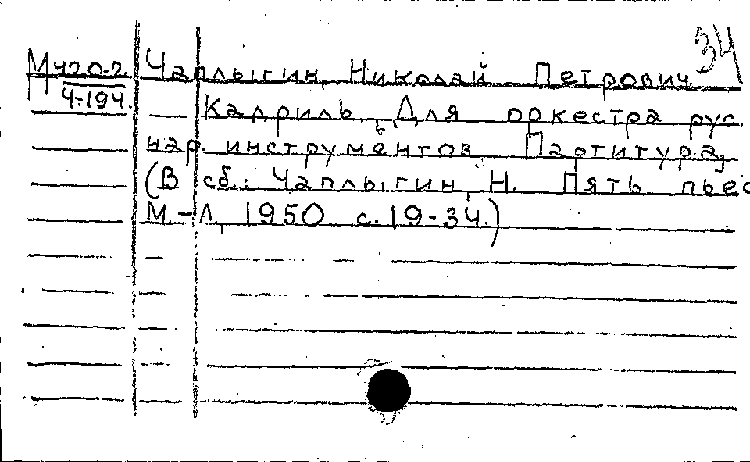 34
М420-2 Чаплыгин, Николай Петрович
4-194. Кадриль. Для оркестра рус.
нар. инструментов. Партитура.
(В сб.: Чаплыгин, Н. Пять пьес
М.-Л., 1950 с. 19-34.)